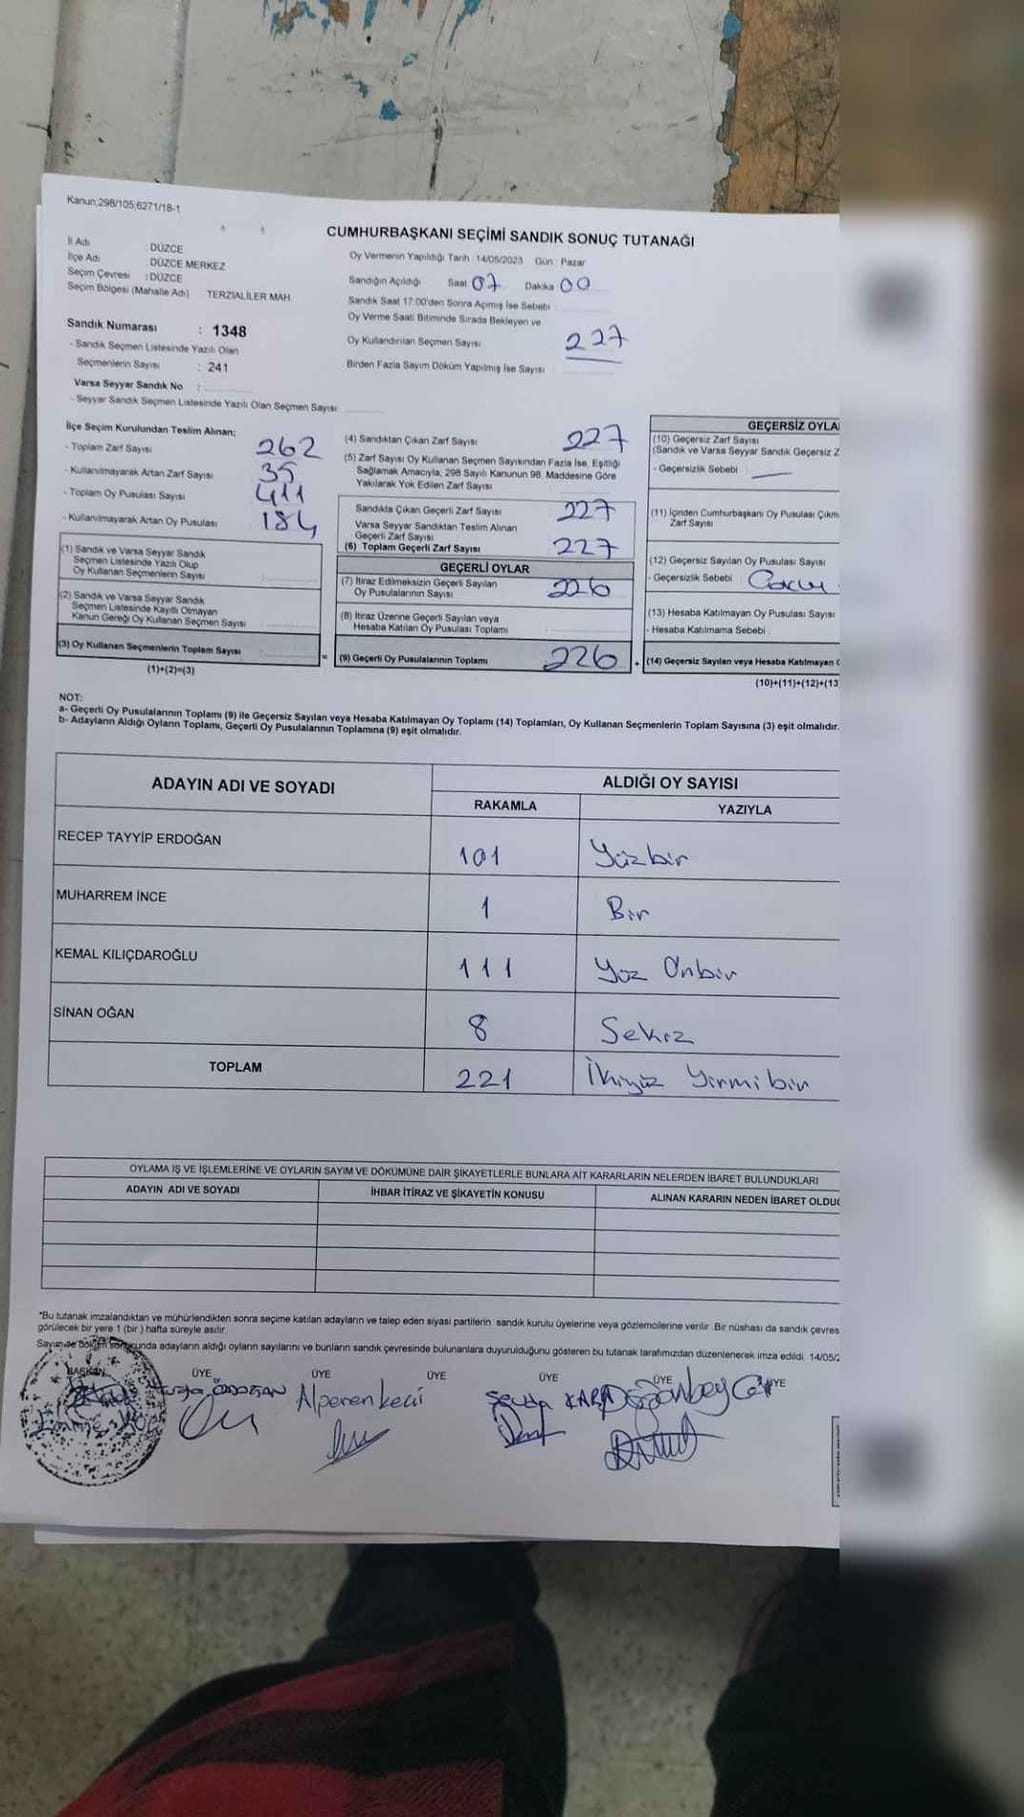 Kanun;298/105,6271/18-1
CUMHURBAŞKANI SEÇİMİ SANDIK SONUÇ TUTANAĞI
İl Adı : DÜZCE
İlçe Adı : DÜZCE MERKEZ
Seçim Çevresi : DÜZCE
Seçim Bölgesi (Mahalle Adı) TERZİALİLER MAH.
Sandık Numarası : 1348
- Sandık Seçmen Listesinde Yazılı Olan
Seçmenlerin Sayısı : 241
Varsa Seyyar Sandık No :
- Seyyar Sandık Seçmen Listesinde Yazılı Olan Seçmen Sayısı
Oy Vermenin Yapıldığı Tarih : 14/05/2023 Gün : Pazar
Sandığın Açıldığı Saat 07 Dakika 00
Sandık Saat 17:00'den Sonra Açımış İse Sebebi
Oy Verme Saati Bitiminde Sırada Bekleyen ve
Oy Kullandırılan Seçmen Sayısı 227
Birden Fazla Sayım Döküm Yapılmış İse Sayısı
İlçe Seçim Kurulundan Teslim Alınan;
- Toplam Zarf Sayısı 262
- Kullanılmayarak Artan Zarf Sayısı 35
- Toplam Oy Pusulası Sayısı 411
- Kullanılmayarak Artan Oy Pusulası 184
(1) Sandık ve Varsa Seyyar Sandık
Seçmen Listesinde Yazılı Olup
Oy Kullanan Seçmenlerin Sayısı
(2) Sandık ve Varsa Seyyar Sandık
Seçmen Listesinde Kayıtlı Olmayan
Kanun Gereği Oy Kullanan Seçmen Sayısı
(3) Oy Kullanan Seçmenlerin Toplam Sayısı =
(1)+(2)=(3)
(4) Sandıktan Çıkan Zarf Sayısı 227
(5) Zarf Sayısı Oy Kullanan Seçmen Sayısından Fazla İse, Eşitliği
Sağlamak Amacıyla, 298 Sayılı Kanunun 98. Maddesine Göre
Yakılarak Yok Edilen Zarf Sayısı
Sandıkta Çıkan Geçerli Zarf Sayısı 227
Varsa Seyyar Sandıktan Teslim Alınan
Geçerli Zarf Sayısı
(6) Toplam Geçerli Zarf Sayısı 227
GEÇERLİ OYLAR
(7) İtiraz Edilmeksizin Geçerli Sayılan
Oy Pusulalarının Sayısı 226
(8) İtiraz Üzerine Geçerli Sayılan veya
Hesaba Katılan Oy Pusulası Toplamı
(9) Geçerli Oy Pusulalarının Toplamı 226 +
GEÇERSİZ OYLA
(10) Geçersiz Zarf Sayısı
(Sandık ve Varsa Seyyar Sandık Geçersiz Z
- Geçersizlik Sebebi
(11) İçinden Cumhurbaşkanı Oy Pusulası Çıkm
Zarf Sayısı
(12) Geçersiz Sayılan Oy Pusulası Sayısı
- Geçersizlik Sebebi
(13) Hesaba Katılmayan Oy Pusulası Sayısı
- Hesaba Katılmama Sebebi
(14) Geçersiz Sayılan veya Hesaba Katılmayan
(10)+(11)+(12)+(13
NOT:
a- Geçerli Oy Pusulalarının Toplamı (9) ile Geçersiz Sayılan veya Hesaba Katılmayan Oy Toplamı (14) Toplamları, Oy Kullanan Seçmenlerin Toplam Sayısına (3) eşit olmalıdır.
b- Adayların Aldığı Oyların Toplamı, Geçerli Oy Pusulalarının Toplamına (9) eşit olmalıdır.
ADAYIN ADI VE SOYADI ALDIĞI OY SAYISI
RAKAMLA YAZIYLA
RECEP TAYYİP ERDOĞAN 101 Yüzbir
MUHARREM İNCE 1 Bir
KEMAL KILIÇDAROĞLU 111 Yüz Onbir
SİNAN OĞAN 8 Sekiz
TOPLAM 221 İkiyüz Yirmibir
OYLAMA İŞ VE İŞLEMLERİNE VE OYLARIN SAYIM VE DÖKÜMÜNE DAİR ŞİKAYETLERLE BUNLARA AİT KARARLARIN NELERDEN İBARET BULUNDUKLARI
ADAYIN ADI VE SOYADI İHBAR İTİRAZ VE ŞİKAYETİN KONUSU ALINAN KARARIN NEDEN İBARET OLDUĞ
*Bu tutanak imzalandıktan ve mühürlendikten sonra seçime katılan adayların ve talep eden siyasi partilerin sandık kurulu üyelerine veya gözlemcilerine verilir. Bir nüshası da sandık çevres
görülecek bir yere 1 (bir) hafta süreyle asılır.
adayların aldığı oyların sayılarını ve bunların sandık çevresinde bulunanlara duyurulduğunu gösteren bu tutanak tarafımızdan düzenlenerek imza edildi. 14/05/2
BAŞKAN ÜYE ÜYE ÜYE ÜYE ÜYE
Alperen keçi